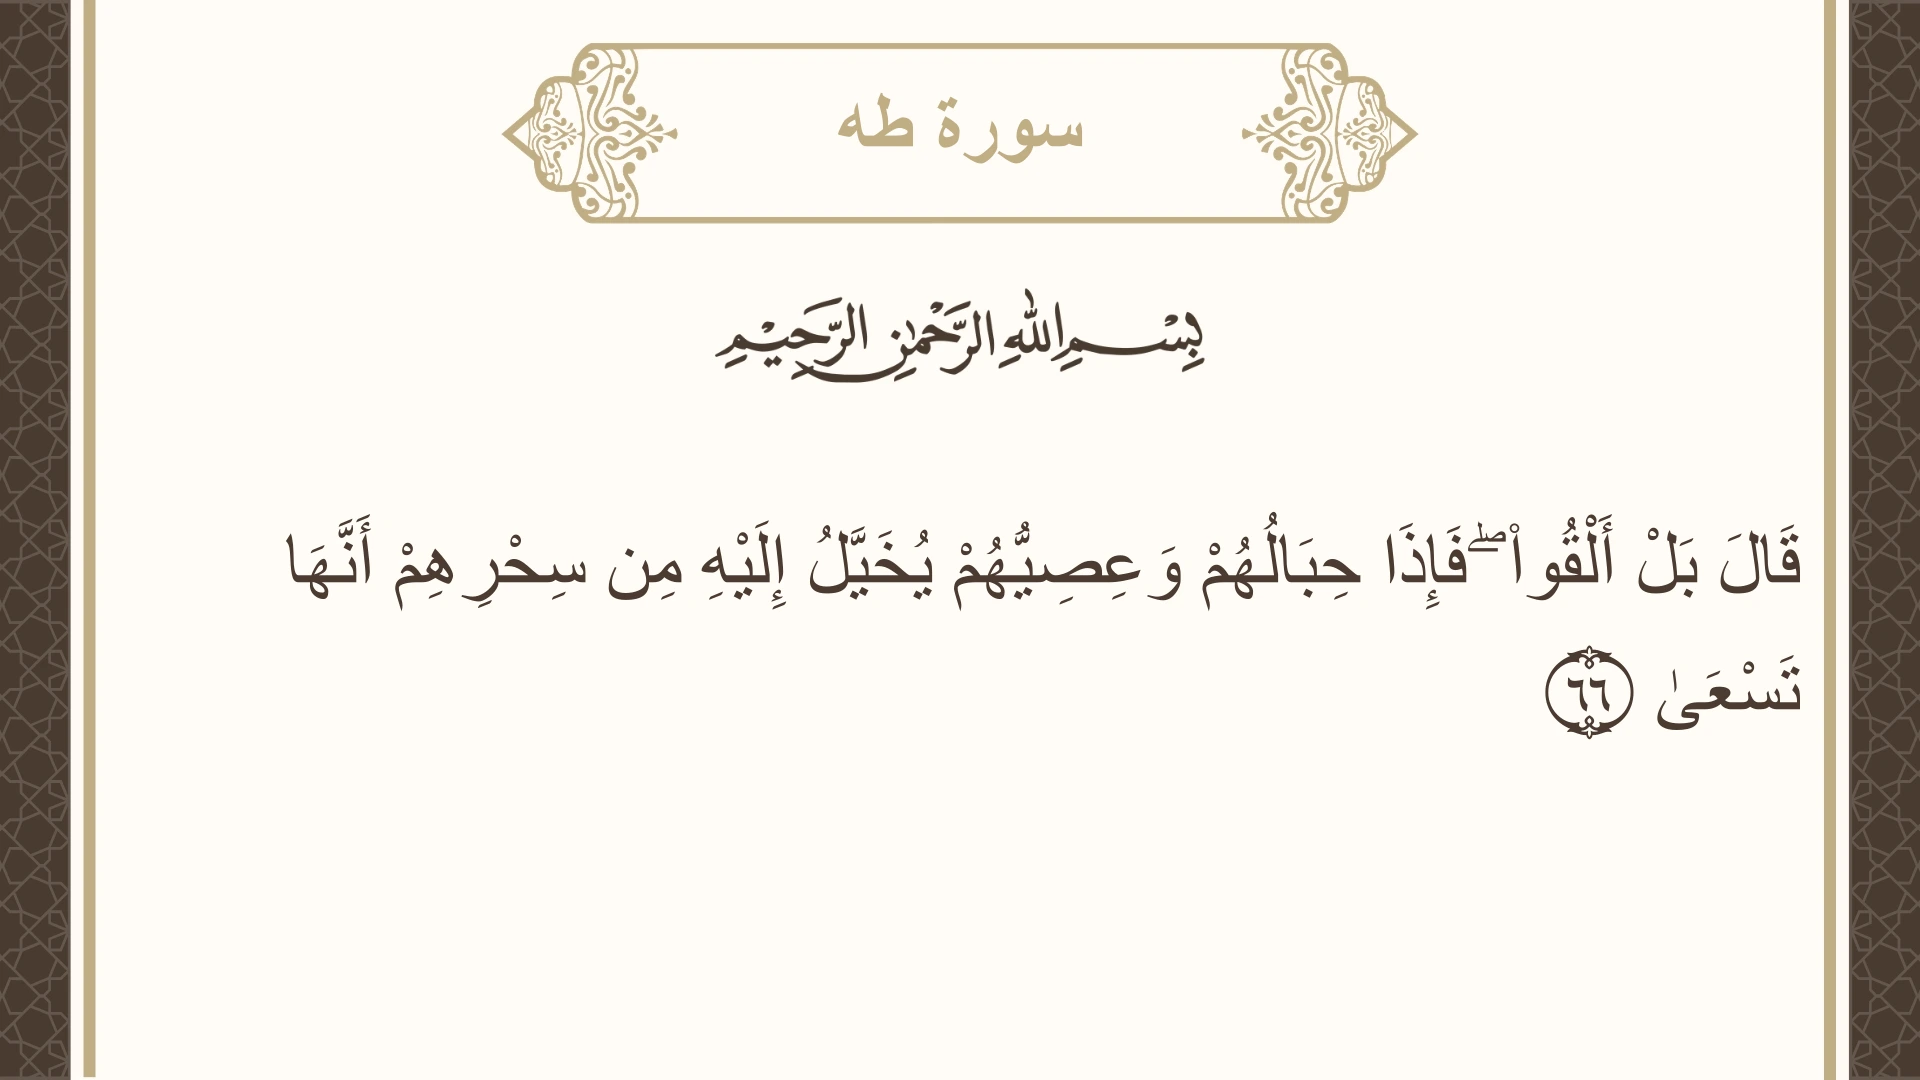 سورة طه
بِسْمِ اللهِ الرَّحْمٰنِ الرَّحِيْمِ
قَالَ بَلْ أَلْقُوا۟ ۖ فَإِذَا حِبَالُهُمْ وَعِصِيُّهُمْ يُخَيَّلُ إِلَيْهِ مِن سِحْرِهِمْ أَنَّهَا
تَسْعَىٰ ٦٦